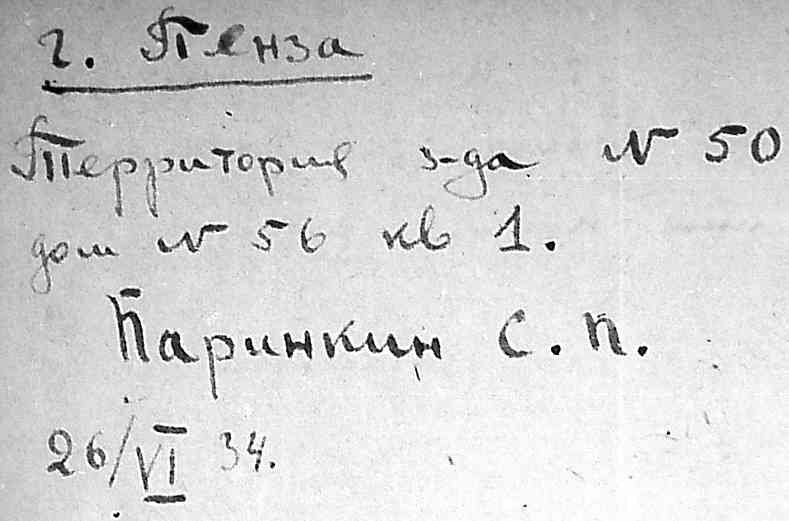 г. Пенза
Территория з-да № 50
дом № 56 кв 1.
Паринкин С. П.
26/VI 34.